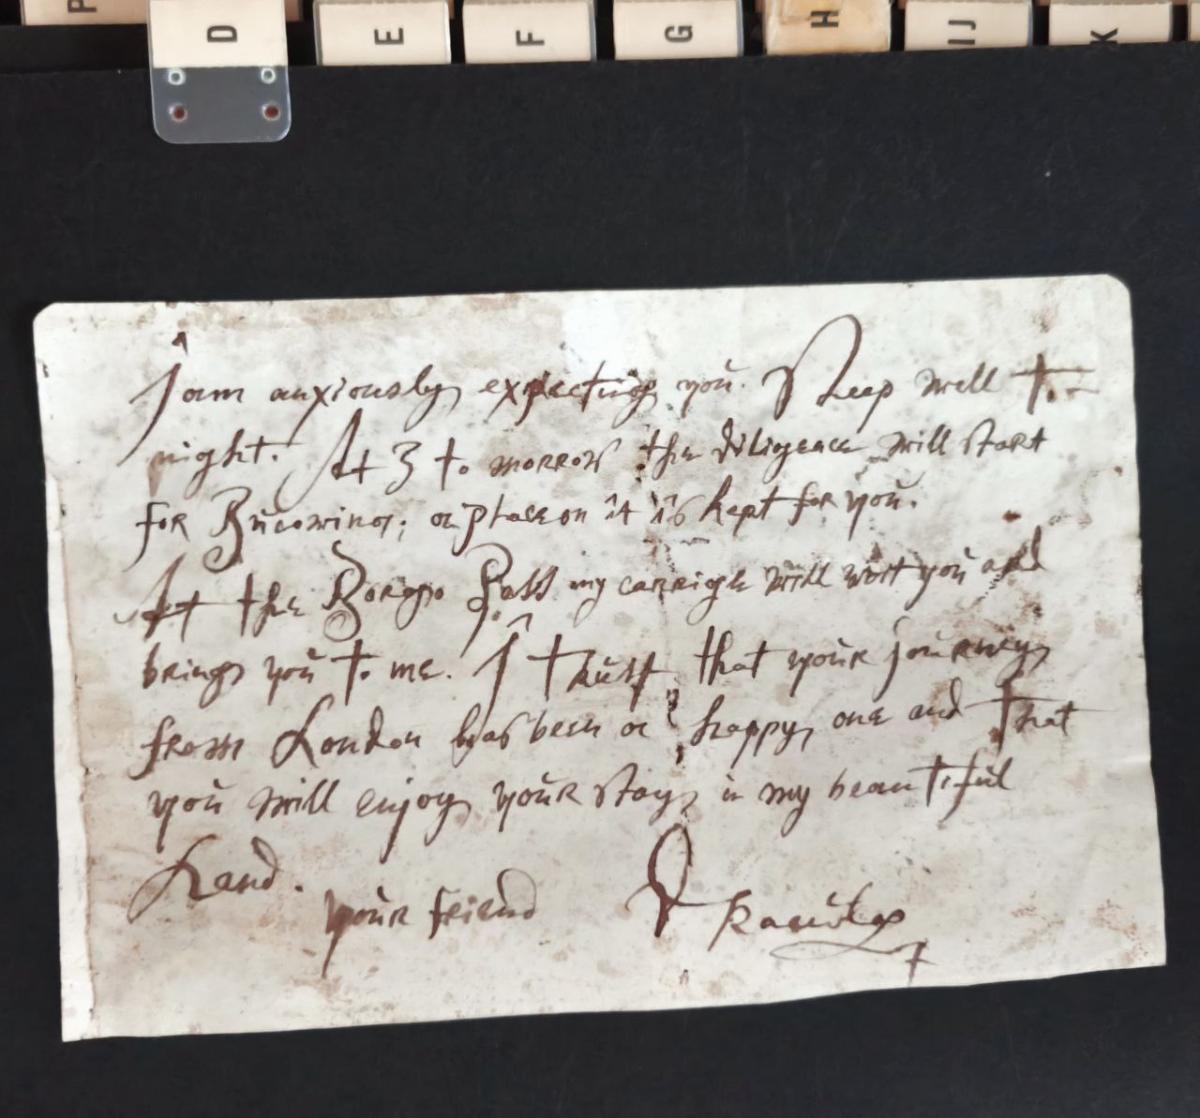 P D E F G H IJ K
I am anxiously expecting you. Sleep well to-
night. At 3 to morrow the diligence will start
for Bucowina; a place on it is kept for you.
At the Borgo Pass my carriage will wait you and
bring you to me. I trust that your journey
from London has been a happy one and that
you will enjoy your stay in my beautiful
Land.
your friend Dracula